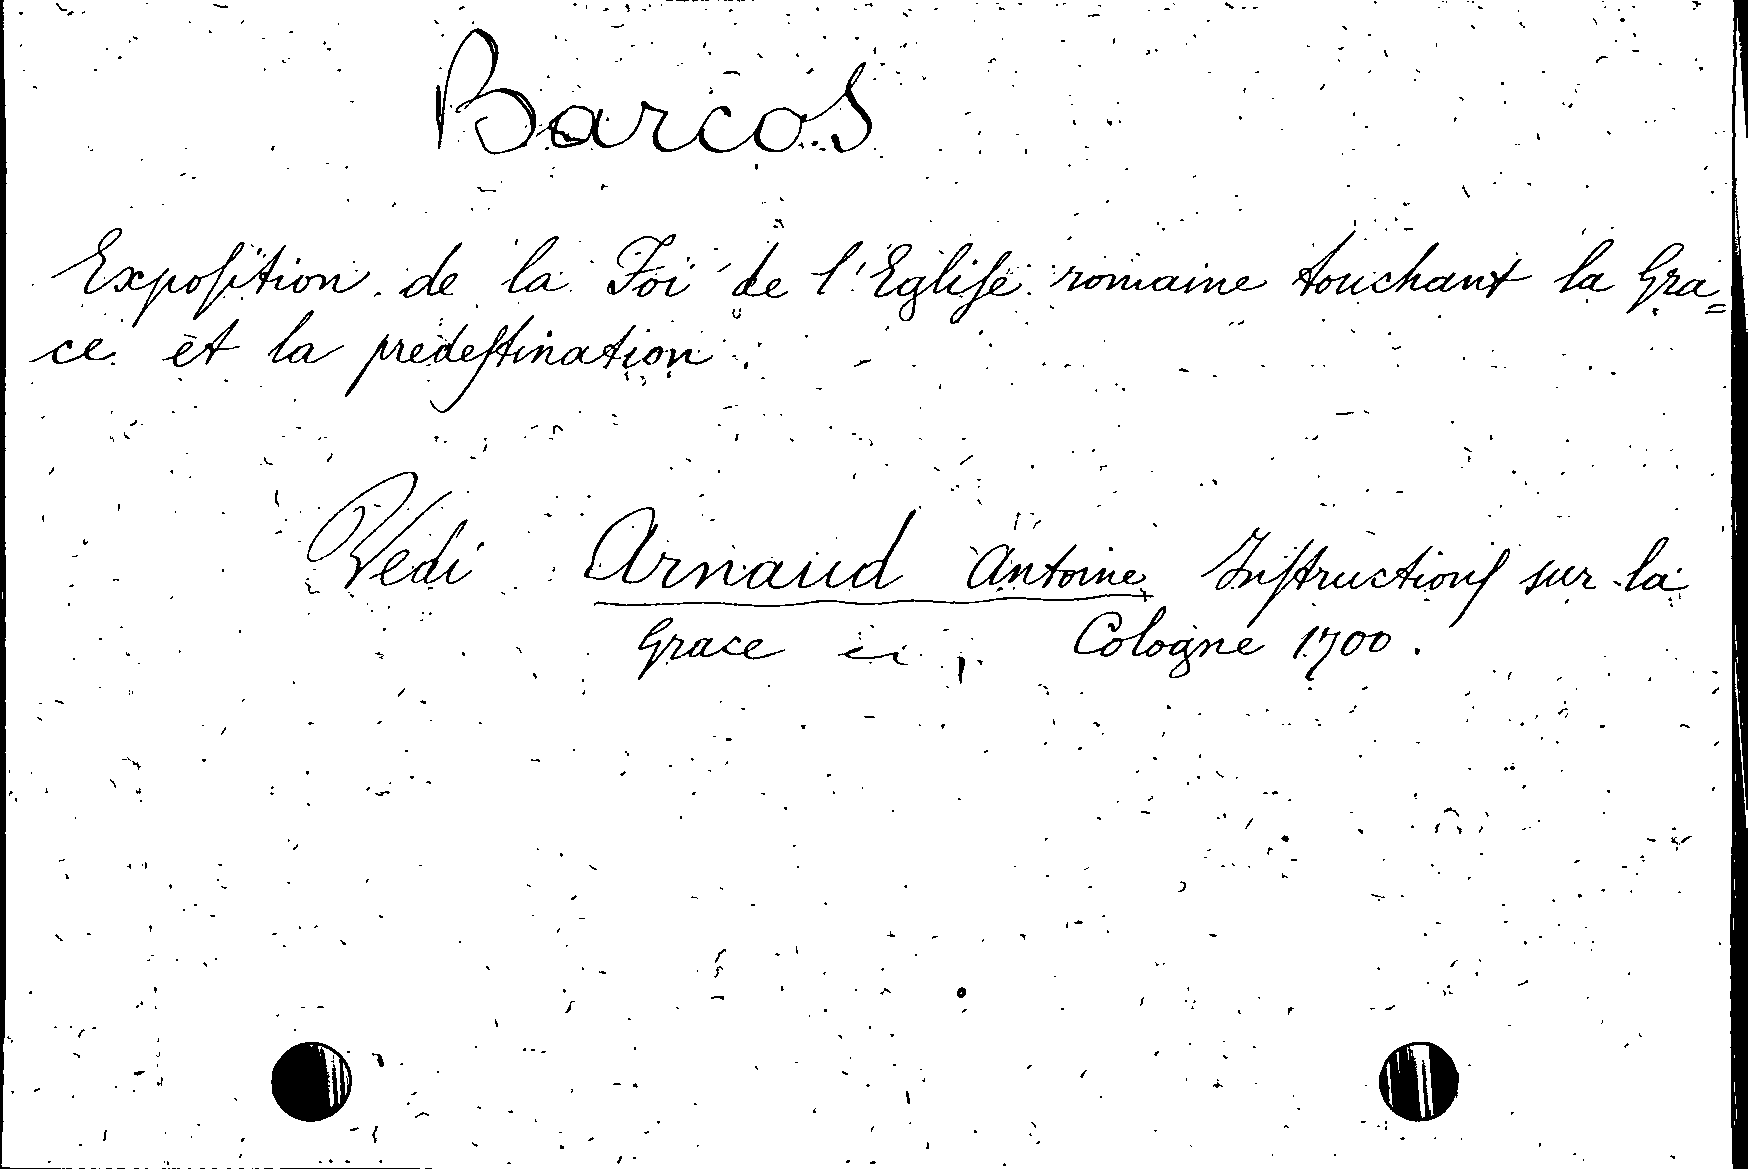 Barcos
Exposition de la Foi de l'Eglise romaine touchant la Gra=
ce et la predestination.
Vedi Arnaud Antoine Instructions sur la
Grace Cologne 1700.